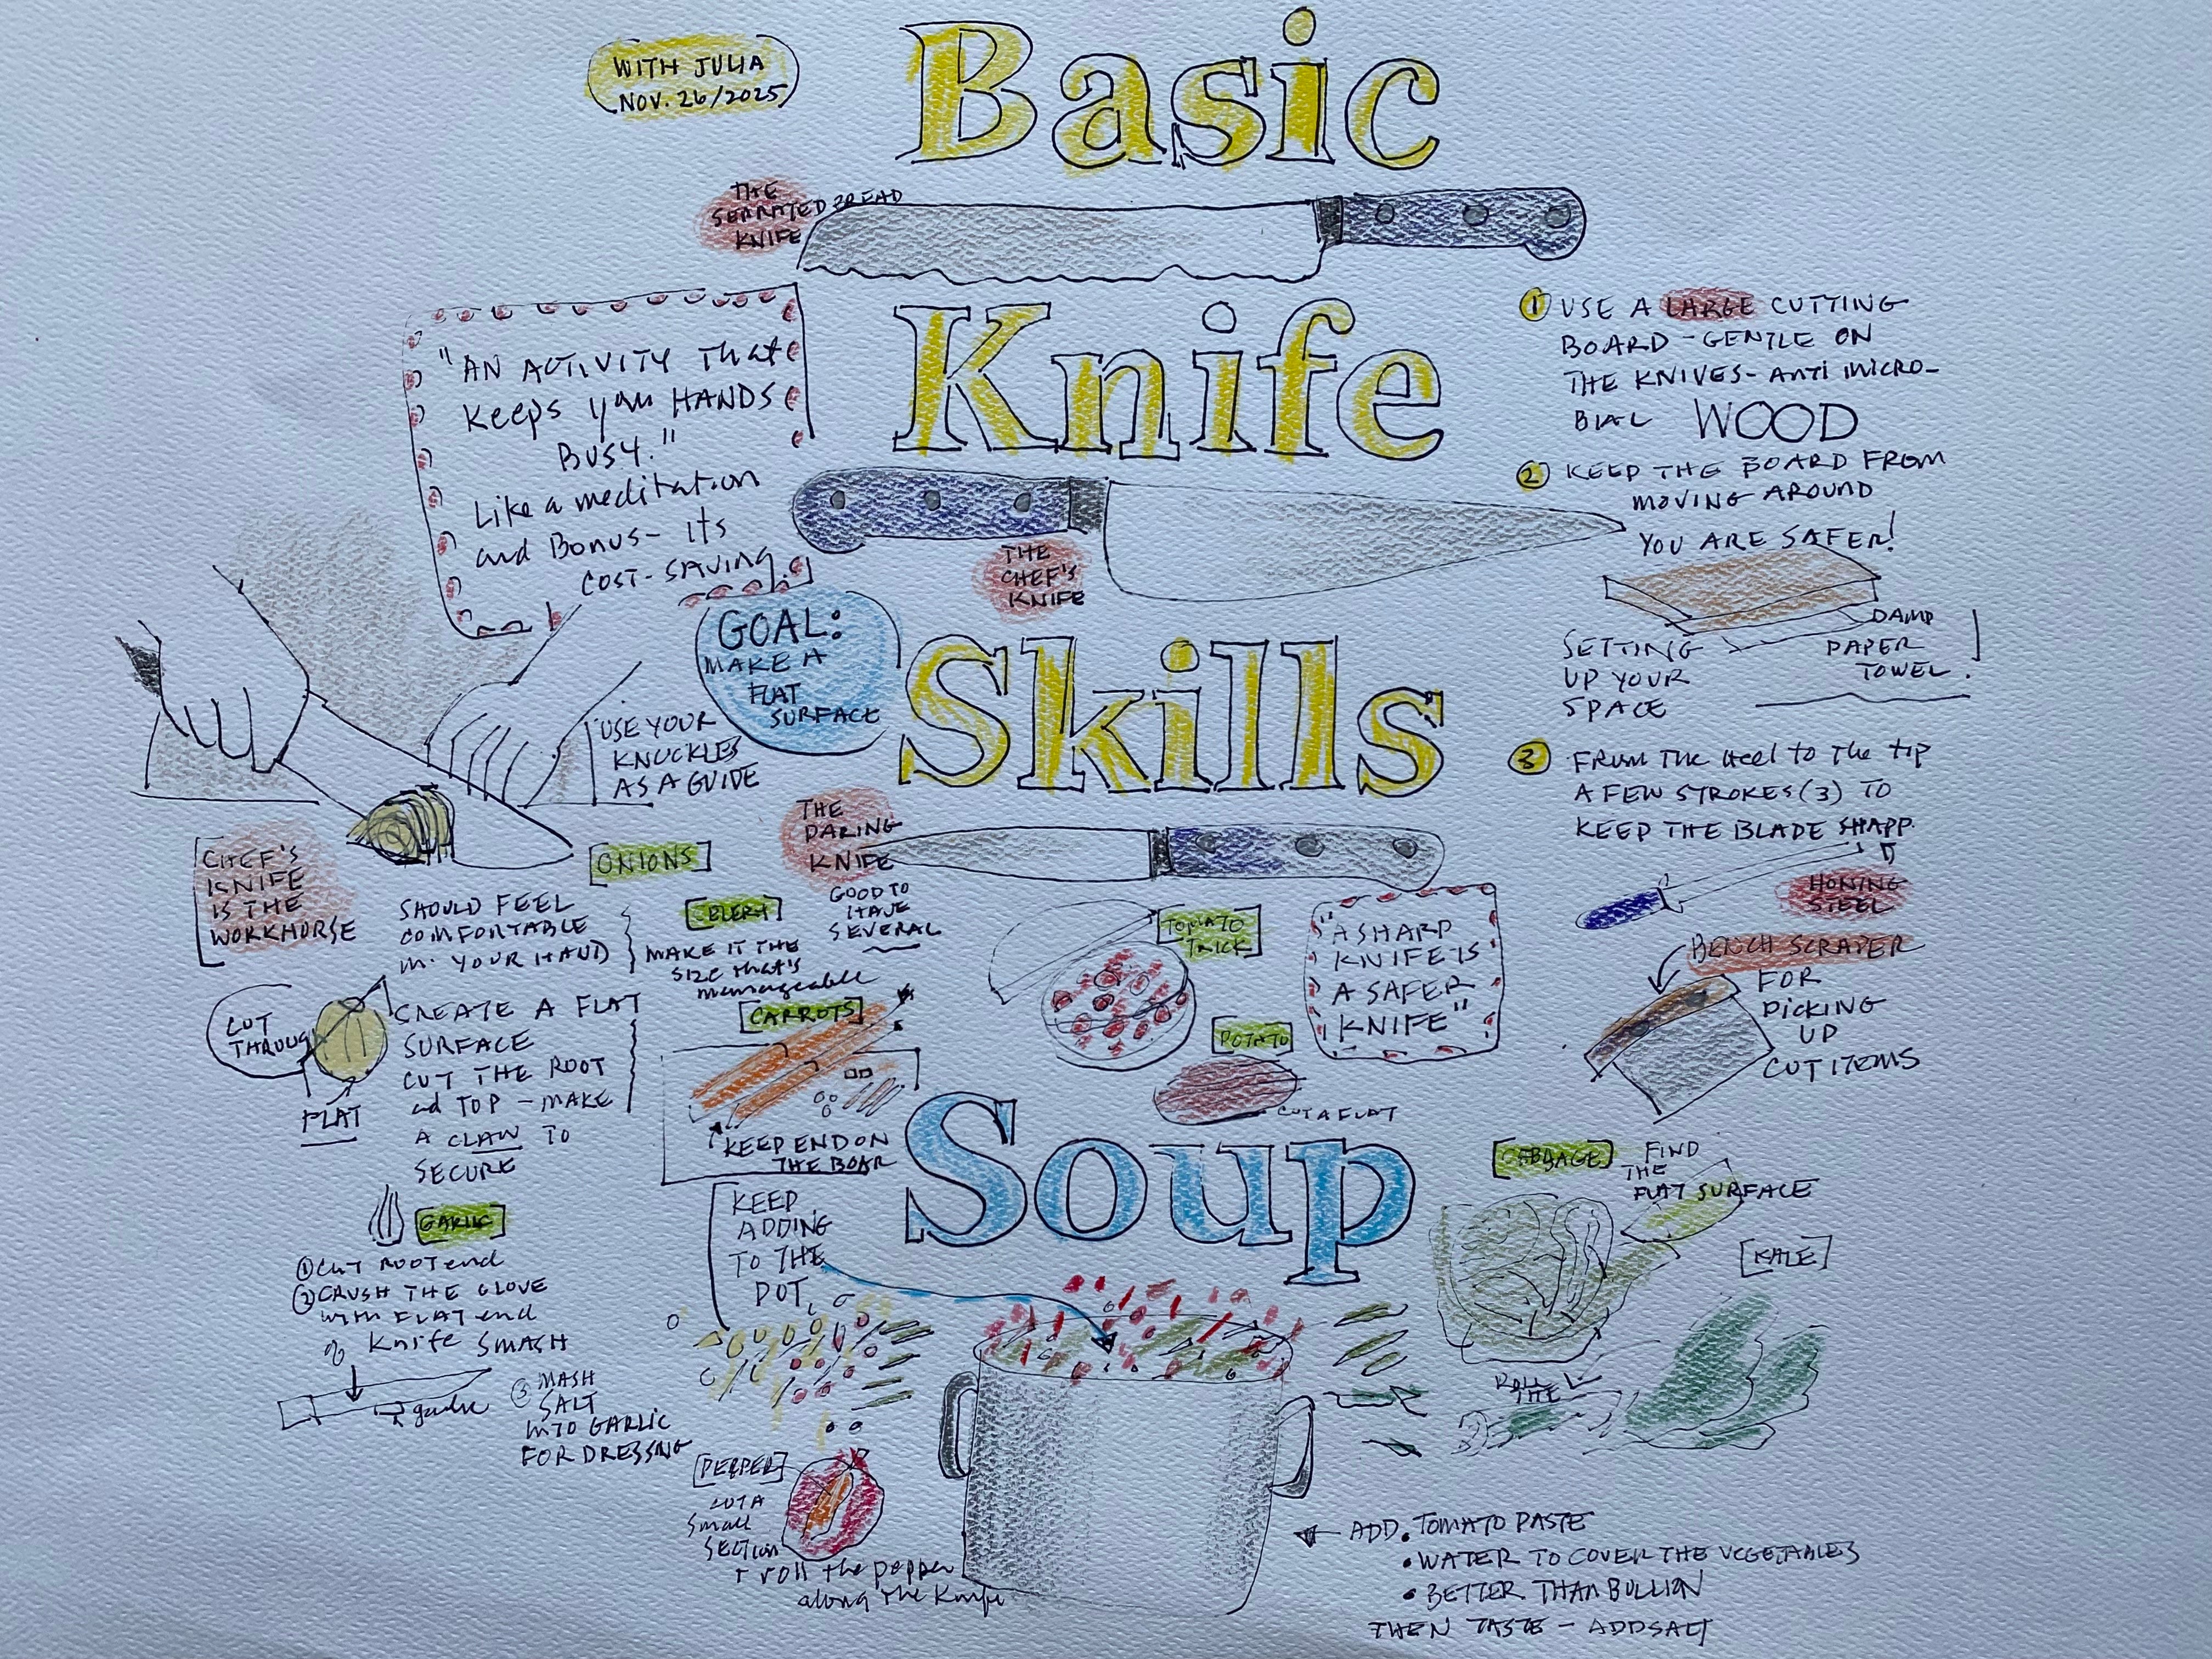 WITH JULIA
NOV. 26/2025
Basic
THE
SERRATED BREAD
KNIFE
Knife
"AN ACTIVITY That
Keeps your HANDS
BUSY."
Like a meditation
and Bonus- Its
COST-SAVING.
THE
CHEF'S
KNIFE
1 USE A LARGE CUTTING
BOARD - GENTLE ON
THE KNIVES - ANTI MICRO-
BIAL WOOD
2 KEEP THE BOARD FROM
MOVING AROUND
YOU ARE SAFER!
DAMP
PAPER
TOWEL.
SETTING
UP YOUR
SPACE
GOAL:
MAKE A
FLAT
SURFACE
Skills
USE YOUR
KNUCKLES
AS A GUIDE
3 FROM The Heel to The tip
A FEW STROKES (3) TO
KEEP THE BLADE SHAPP.
HONING
STEEL
THE
PARING
KNIFE
GOOD TO
HAVE
SEVERAL
CHEF'S
KNIFE
IS THE
WORKHORSE
SHOULD FEEL
COMFORTABLE
in YOUR HAND
ONIONS
CUT
THROUG
FLAT
CREATE A FLAT
SURFACE
CUT THE ROOT
ad TOP - MAKE
A CLAW TO
SECURE
CELERY
MAKE IT THE
SIZE that's
manageable
CARROTS
KEEP END ON
THE BOAR
TOMATO
TRICK
"A SHARP
KNIFE IS
A SAFER
KNIFE"
POTATO
CUT A FLAT
BENCH SCRAPER
FOR
PICKING
UP
CUT ITEMS
Soup
GARLIC
1 CUT ROOT end
2 CRUSH THE CLOVE
with FLAT end
of Knife SMASH
garlic
3 MASH
SALT
INTO GARLIC
FOR DRESSING
KEEP
ADDING
TO THE
POT
CABBAGE
FIND
THE
FLAT SURFACE
KALE
ROLL
THE
PEPPER
CUT A
Small
SECTION
+ roll the pepper
along The Knife
ADD • TOMATO PASTE
• WATER TO COVER THE VEGETABLES
• BETTER THAN BULLION
THEN TASTE - ADD SALT